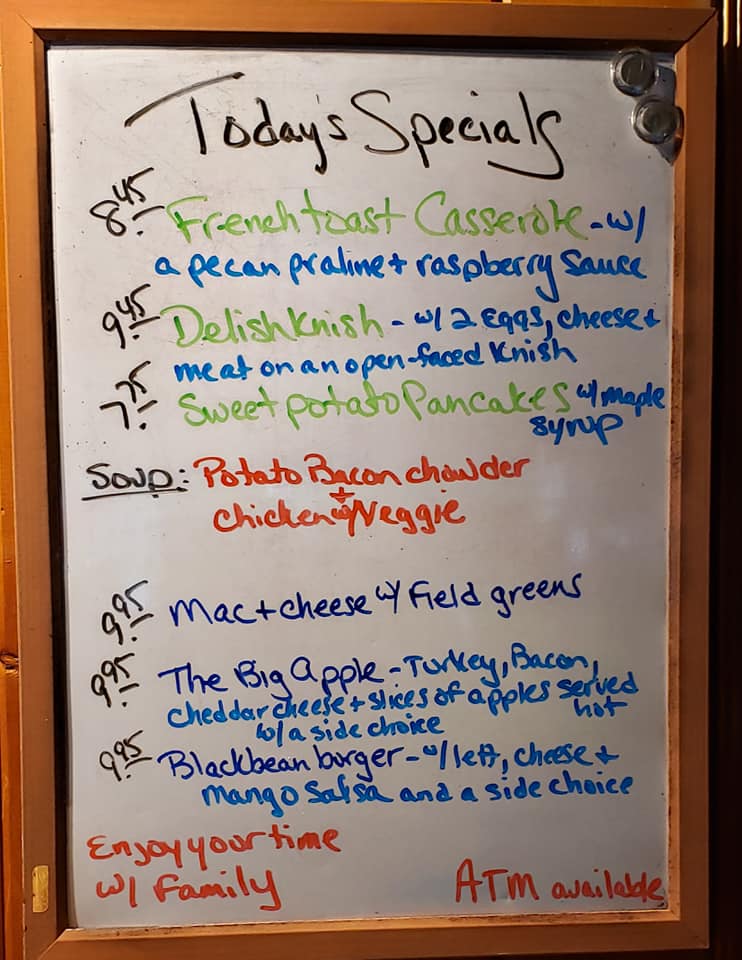 Today's Specials
8.45 French toast Casserole - w/
a pecan praline + raspberry Sauce
9.45 Delish Knish - w/ 2 Eggs, cheese +
meat on an open-faced Knish
7.75 Sweet potato Pancakes w/ maple
syrup
Soup: Potato Bacon chowder
+
chicken w/ Veggie
9.95 Mac + cheese w/ Field greens
9.95 The Big Apple - Turkey, Bacon,
cheddar cheese + slices of apples served
hot
w/ a side choice
9.95 Blackbean burger - w/ lett, cheese +
Mango Salsa and a side choice
Enjoy your time
w/ Family
ATM available